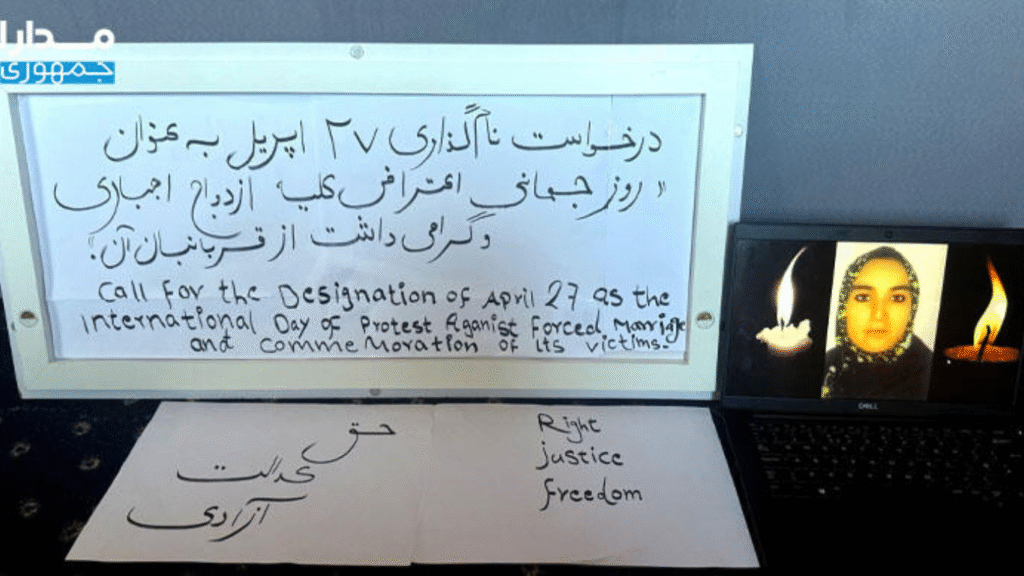 مدارا
جمهوری
درخواست نامگذاری ۲۷ اپریل به عنوان
«روز جهانی اعتراض علیه ازدواج اجباری
و گرامی داشت از قربانیان آن»
Call For the Designation of April 27 as the
International Day of Protest Aganist Forced Marriage
and comme Moration of Its victims.
حق
عدالت
آزادی
Right
justice
freedom
DELL